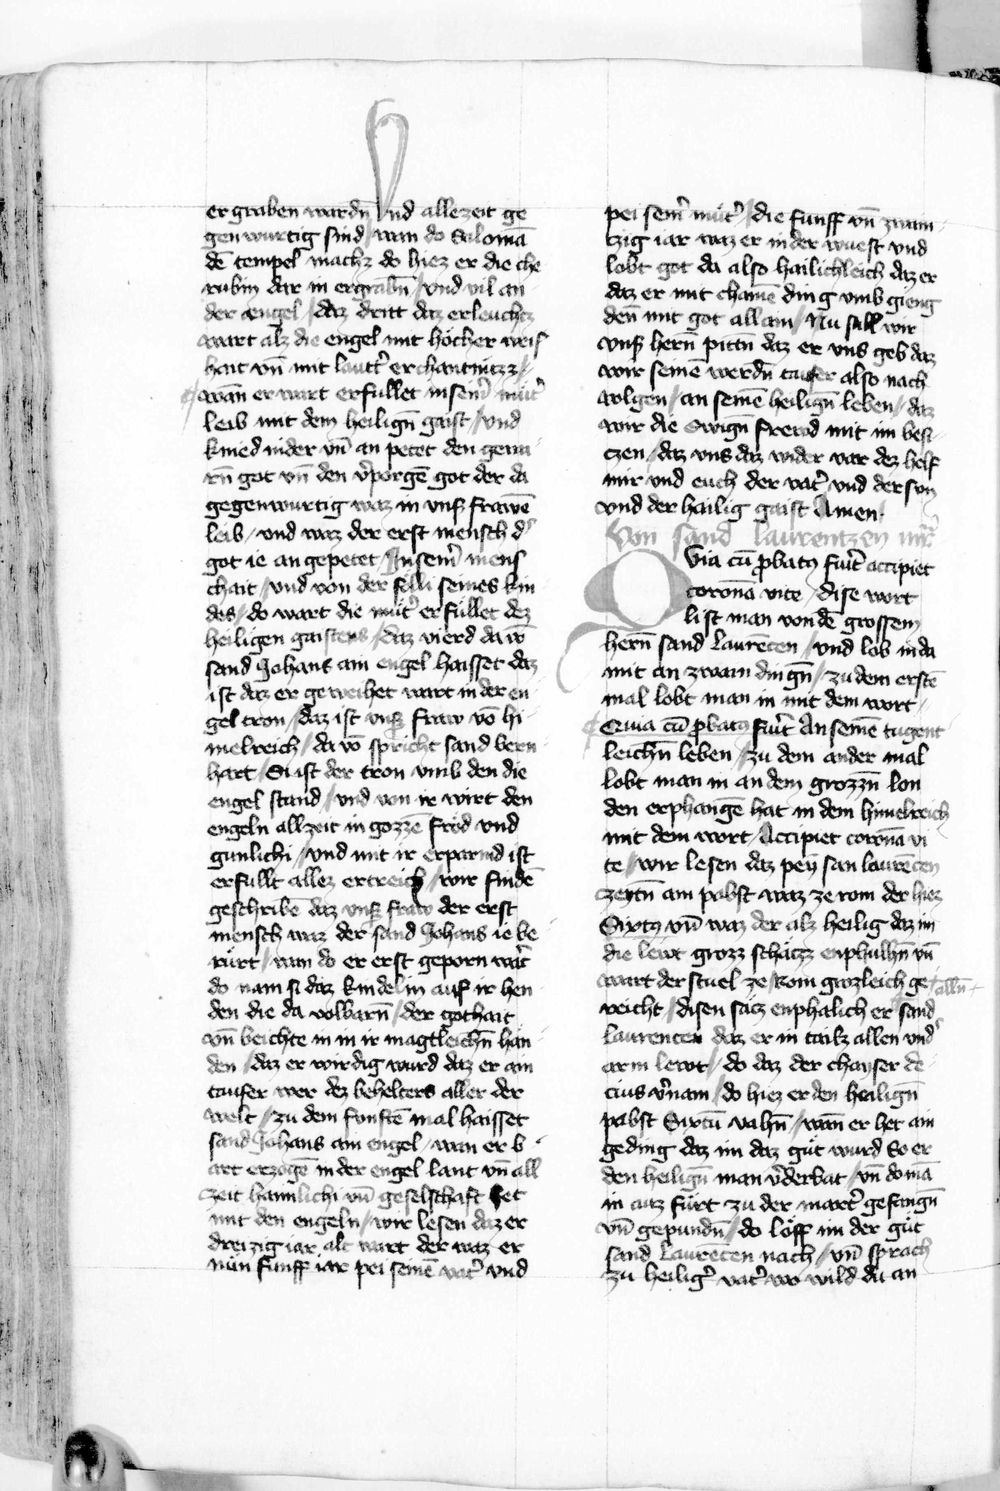 er graben wardn̄ Vnd allezeit ge
gen wurtig sind / wan do Salomā
dē tempel machz do hiez er die che
rubin dar in ergrabn̄ / vnd vil an
der engel / daz dritt daz erleuchtz
wart alz die engel mit höcher weis
hait vn̄ mit lautt' erchantnüzz /
wan er wart erfüllet in sein' müt'
leib mit dem heilign̄ gaist / vnd
knied nider vn̄ an petet den gewā
rn̄ got vn̄ den v'porgē got der da
gegenwurtig waz in vnß frawē
leib / vnd waz der erst mensch d'
got ie an gepetet / In sein' mens
chait / vnd von der füll seines kin
des / do wart die müt' erfüllet dez
heiligen gaistens / daz vierd da vō
sand Johans ain engel haisset daz
ist daz er geweihet wart in der en
gel tron / daz ist vnß fraw vō hi
melreich / da vō spricht sand bern
hart / Si ist der tron vmb den die
engel stand / vnd von ir wirt den
engeln allzeit in gozzē fröd vnd
gunlichi / vnd mit ir erparmd ist
erfullt allez ertreich / wir findē
geschribē daz vnß fraw der erst
mensch waz der sand Johans ie be
rürt / wan do er erst geporn wār
do nam si daz kindelin auf ir hen
den̄ die da volbarn̄ / der gothait
vn̄ beichte in in ir magtleichn̄ hān
den / daz er wirdig wurd daz er ain
taufer wer dez behelters aller der
welt / zu dem funftē mal haisset
sand Johans ain engel / wan er b
art erzogē in der engel lant vn̄ all
zeit haimlichi vn̄ geselschaft het
mit den engeln / wir lesen daz er
dreizig iar alt wart der waz er
nūn funff iar pei seinē vat' vnd
pei sein' müt' / die funff vn̄ zwain
tzig iar waz er in der wuest vnd
lobt got da also hailichleich daz er
daz er mit chainē ding vmb gieng
den̄ mit got allain / Nu süll wir
vnß hern̄ pittn̄ daz er vns geb daz
wir seinē werdn̄ taufer also nach
volgen / an seinē heilign̄ leben / daz
wir die Ewign̄ frewd mit im besi
czen / daz vns daz wider var dez helf
mir vnd euch der vat' vnd der sun
vnd der hailig gaist Amen.
Von sand laurentzen mr̄
Quia cū p̱batꝰ fuit' accipiet
coronā vite / dise wort
list man von dē grossem
hern̄ sand Laurēcen / vnd lob in da
mit an zwain dingn̄ / zu dem erstē
mal lobt man in mit dem wort /
Quia cū p̱batꝰ fuit' An seinē tugent
leichn̄ leben / zu dem ander mal
lobt man in an dem grozzn̄ lon
den erphangē hat in dem himelreich
mit dem wort / Accipiet coronā vi
te / wir lesen daz pey san laurēcen
zeytn̄ ain pabst waz ze rom der hiez
Sixtꝰ vn̄ waz der alz heilig daz im
die lewt grozz schäzz enphulhn̄ vn̄
wart der stuel ze Rom grozleich ge allū
reicht / disen satz enphalich er sand
laurencen daz er in tailz allen vnd'
arm lewt / do daz der chayser de
cius v'nam / do hiez er den heilign̄
pabst Sixtū vahn̄ / wan er het ain
geding daz im daz güt wurd So er
den heilign̄ man v'derbat / vn̄ do mā
in auz fürt zu der mart' gefangn̄
vn̄ gepundn̄ / do löff im der güt
sand Laurēcen nach / vn̄ sprach
zu heilig' vat' wo wild du an